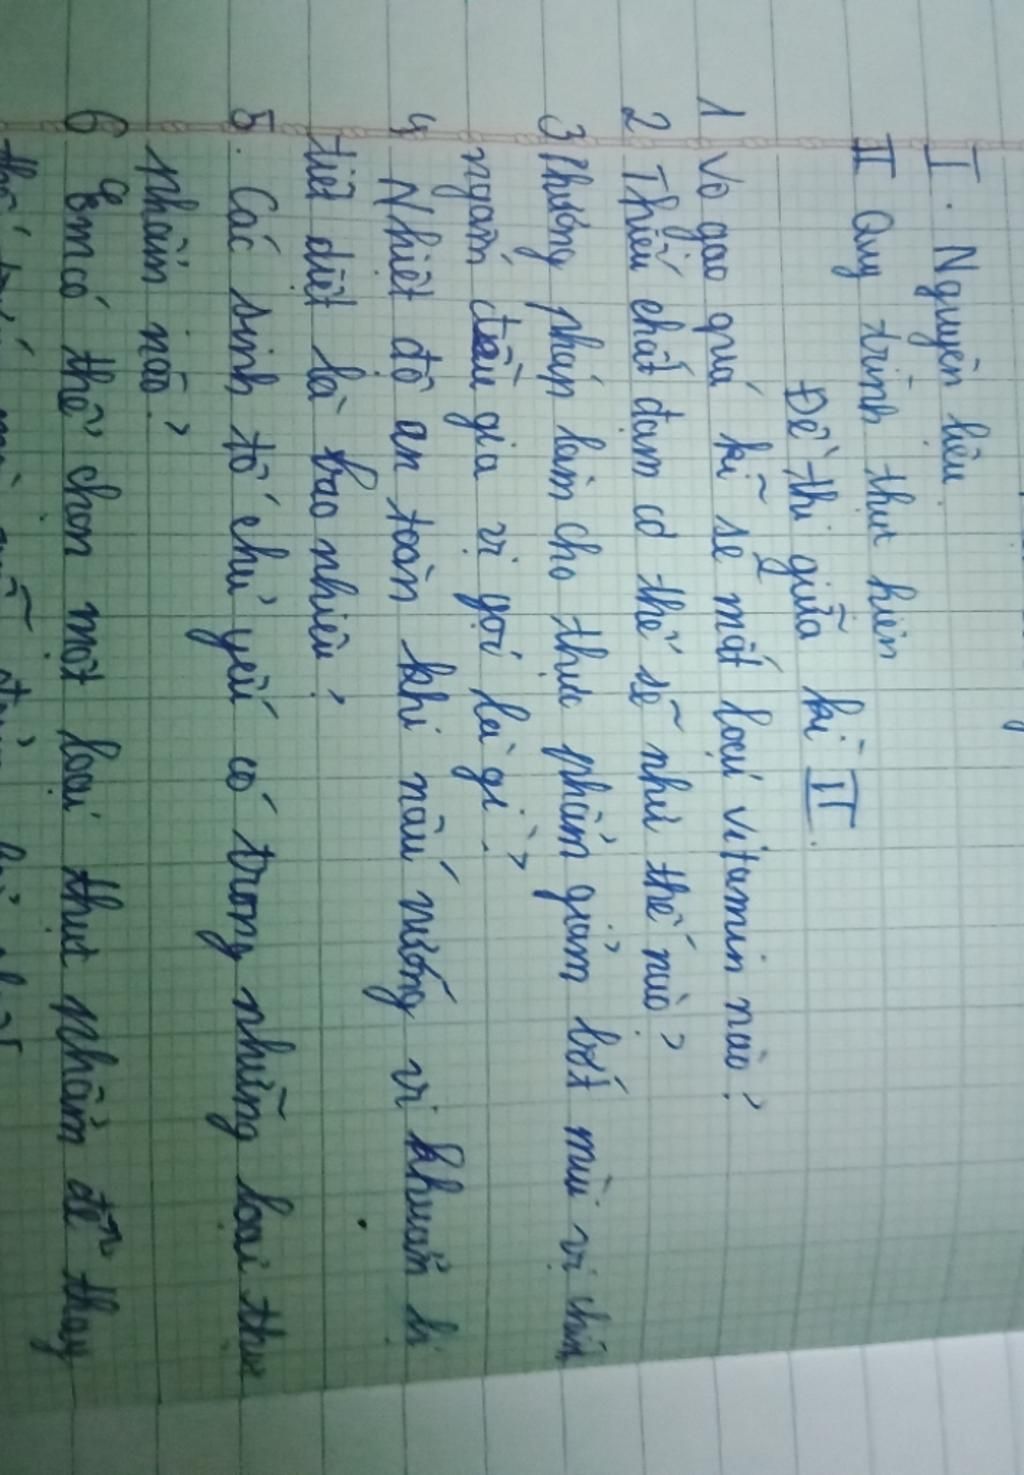 I. Nguyên liệu
II Quy trình thực hiện
Đề thi giữa kì II.
1 Vo gạo quá kĩ sẽ mất loại vitamin nào?
2 Thiếu chất đạm cơ thể sẽ như thế nào?
3 Phương pháp làm cho thực phẩm giảm bớt mùi vị chính
ngấm dầu gia vị gọi là gì?
4 Nhiệt độ an toàn khi nấu nướng vi khuẩn bị
tiêt diệt là bao nhiêu?
5. Các sinh tố chủ yếu có trong những loại thực
phẩm nào?
6 Em có thể chọn một loại thực phẩm để thay